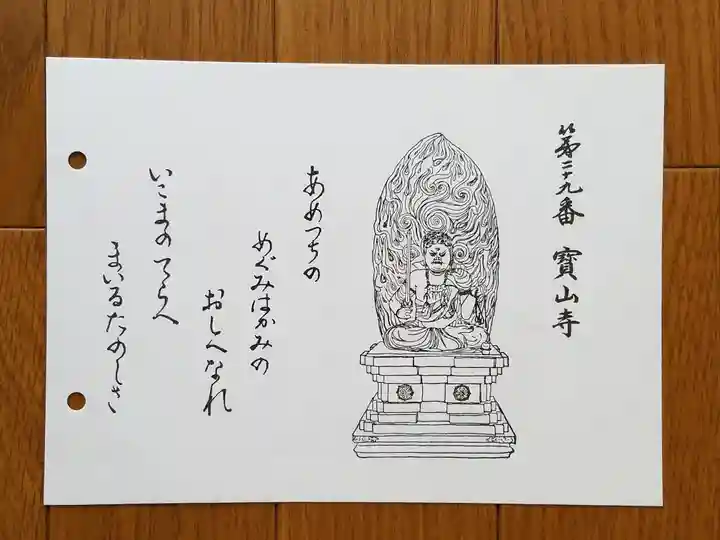 第二十九番 寳山寺
あめつちの
めぐみはかみの
おしへなれ
いこまのてらへ
まいるたのしさ